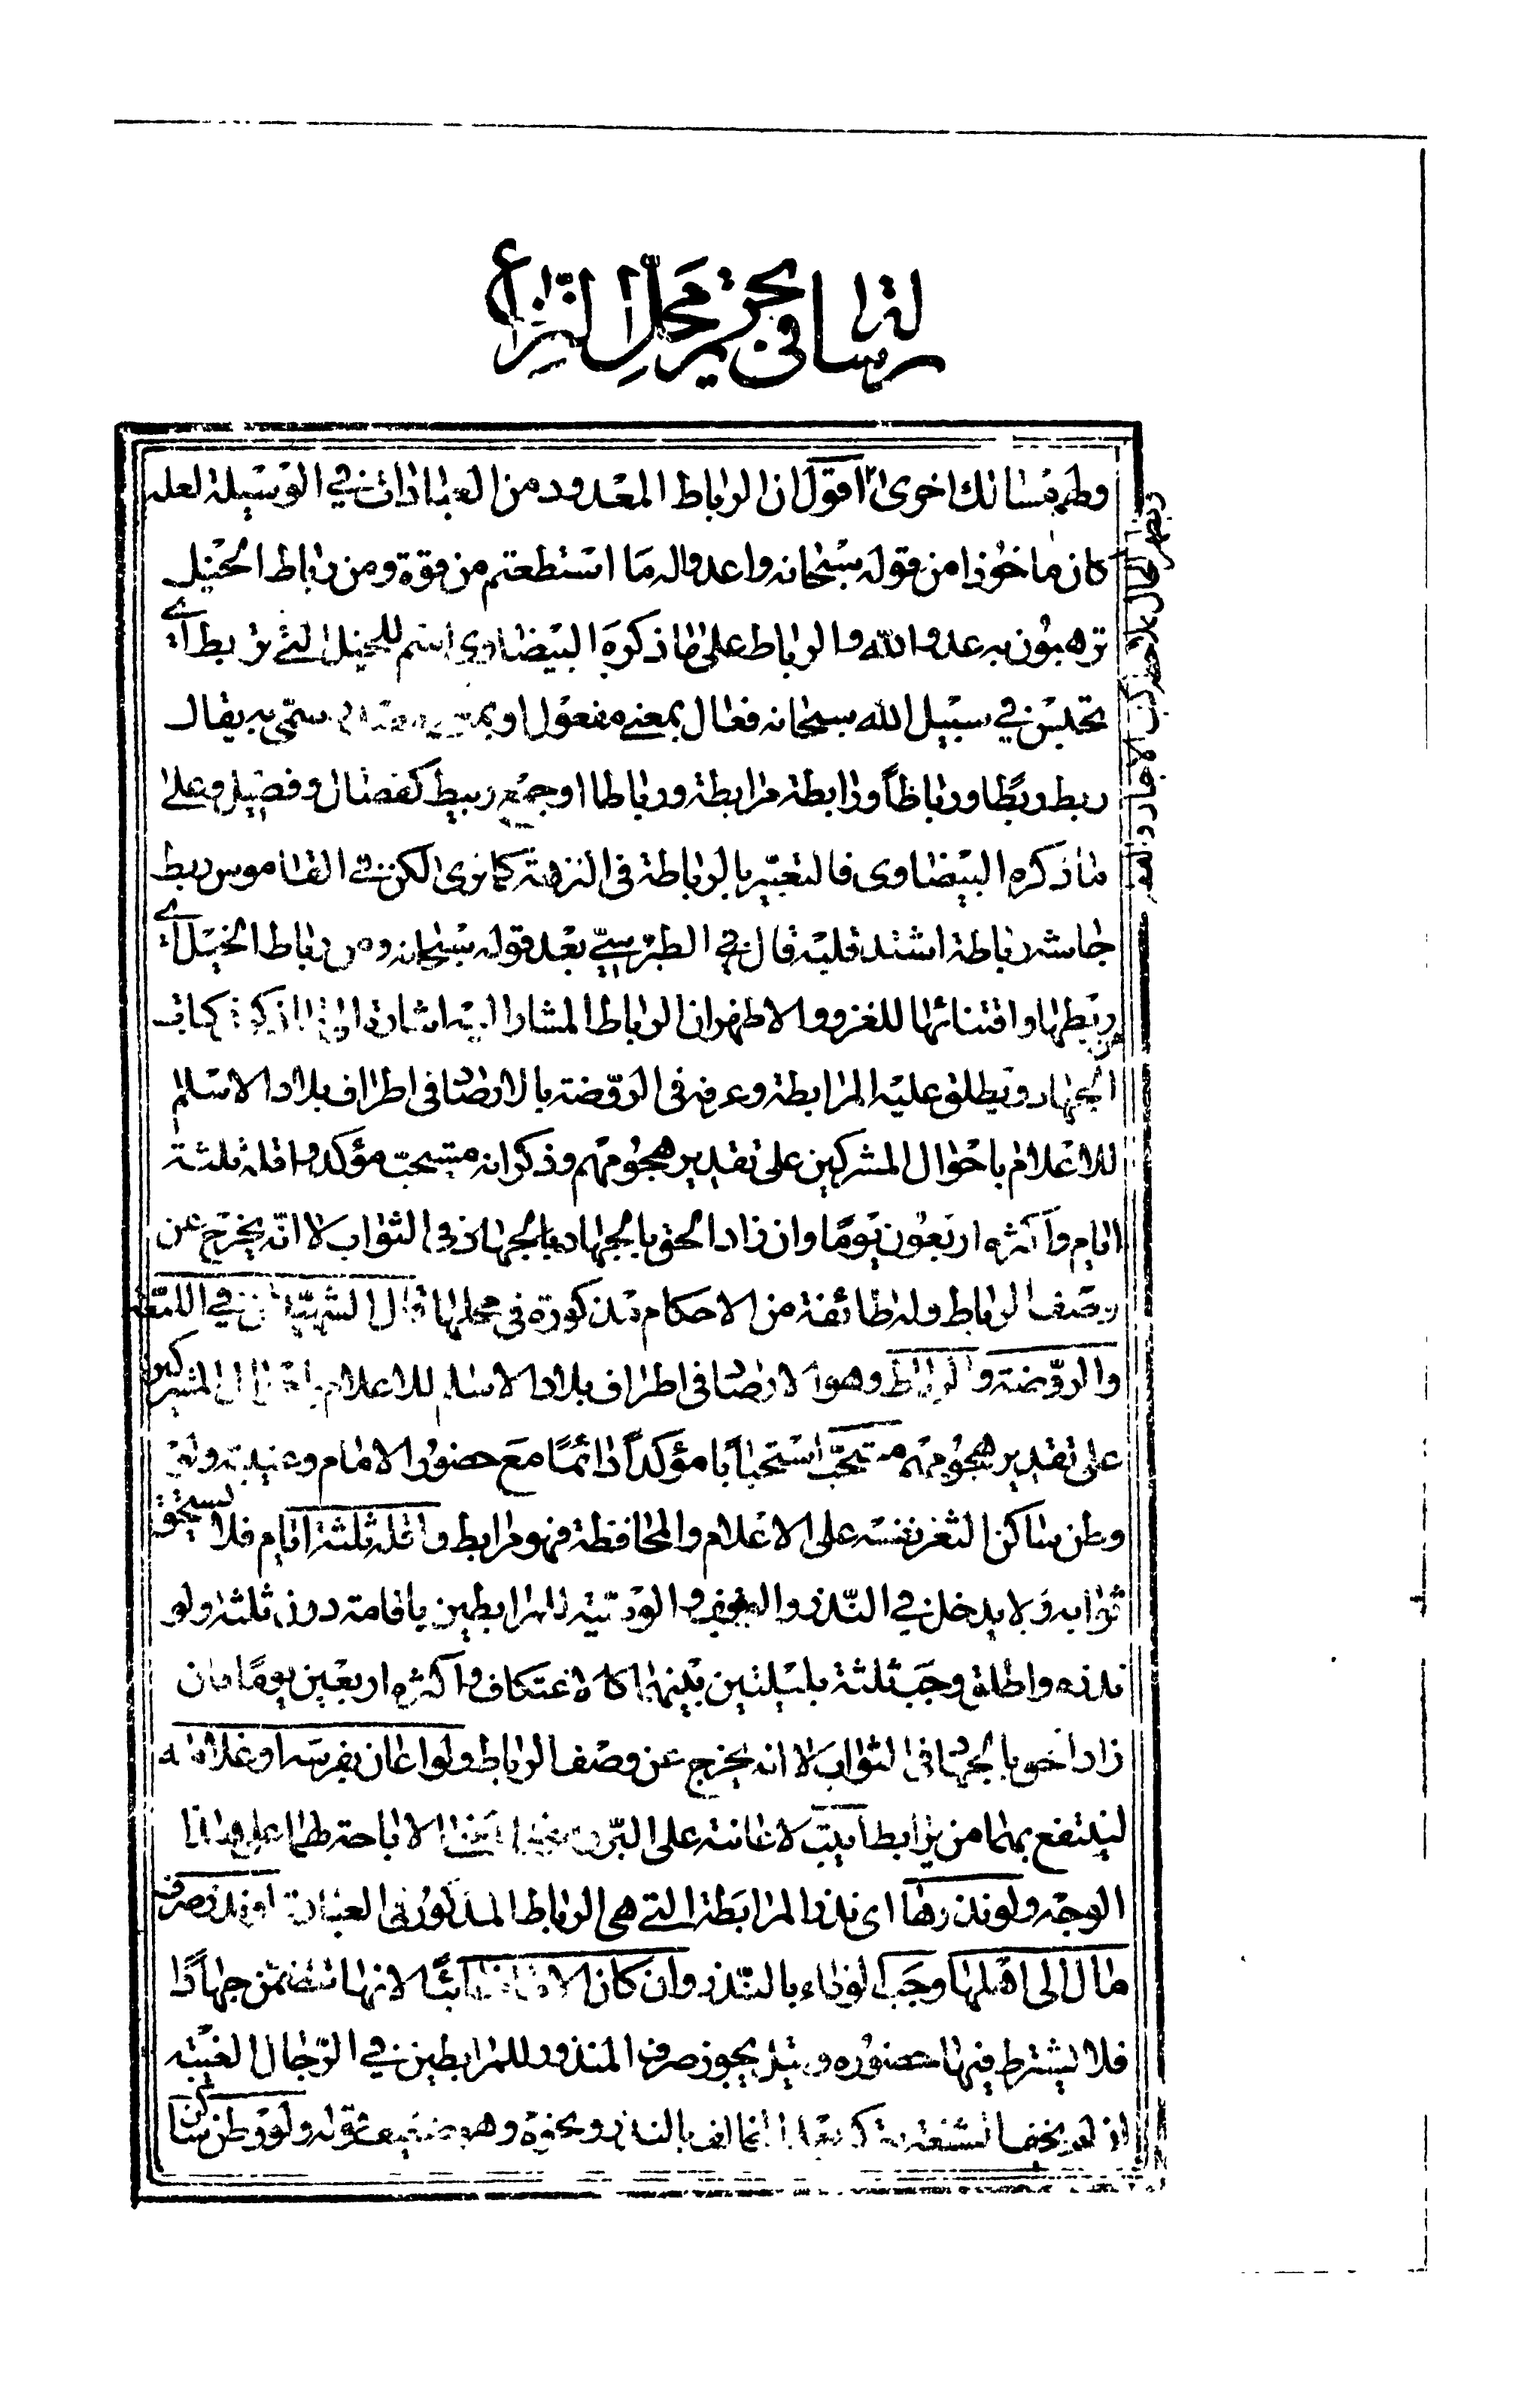 رسالة في تحرير محل النزاع
وطريق مسالك اخرى اقول ان الرباط المعدود من العبادات في الوسيلة لعله
كان ماخوذا من قوله سبحانه واعدوا لهم ما استطعتم من قوة ومن رباط الخيل
ترهبون به عدو الله والرباط على ما ذكره البيضاوى اسم للخيل التى تربط اى
تحتبس في سبيل الله سبحانه فعال بمعنى مفعول او سمى به يقال
ربط ربطا ورباطاً ورابطة مرابطة ورباطا او جمع ربيط كفصال وفصيل وعلى
ما ذكره البيضاوى فالتعبير بالرباطة في النزهة كما ترى لكن في القاموس ربط
جاشه رباطة اشتد قلبه قال في الطبرسي بعد قوله سبحانه ومن رباط الخيل اى
ربطها واقتنائها للغزو والاظهر ان الرباط المشار اليه اشارة
الجهاد ويطلق عليه المرابطة وعرفه في الروضة بالارصاد في اطراف بلاد الاسلام
للاعلام باحوال المشركين على تقدير هجومهم وذكر انه مستحب مؤكد واقله ثلثة
ايام واكثره اربعون يوما وان زاد الحق بالجهاد في الثواب لا انه يخرج عن
وصف الرباط وله طائفة من الاحكام مذكورة في محلها قال الشهيدان في اللمعة
والروضة والرباط وهو الارصاد في اطراف بلاد الاسلام للاعلام باحوال المشركين
على تقدير هجومهم مستحب استحبابا مؤكداً دائما مع حضور الامام وغيبته ولو
وطن ساكن الثغر نفسه على الاعلام والمحافظة فهو مرابط واقله ثلثة ايام فلا يستحق
ثوابه ولا يدخل في النذر والوقف والوصية للمرابطين باقامة دون ثلثة ولو
نذره واطلق وجب ثلثة بليلتين بينهما كالاعتكاف واكثره اربعين يوما فان
زاد الحق بالجهاد في الثواب لا انه يخرج عن وصف الرباط ولو اعان بفرسه او غلامه
لينتفع بهما من يرابط اثيب لاعانته على البر الاباحة لهما على هذا
الوجه ولو نذرها اى نذر المرابطة التى هى الرباط المذكور في العبارة او نذر صرف
مال الى اهلها وجب الوفاء بالنذر وان كان الامام غائبًا لانها تتضمن جهادًا
فلا يشترط فيها حضوره وقيل يجوز صرف المنذور للمرابطين في حال الغيبة
ان لم يخف الشنعة المخالف بالنذر ونحوه وهو ضعيف قوله ولو وطن ساكن